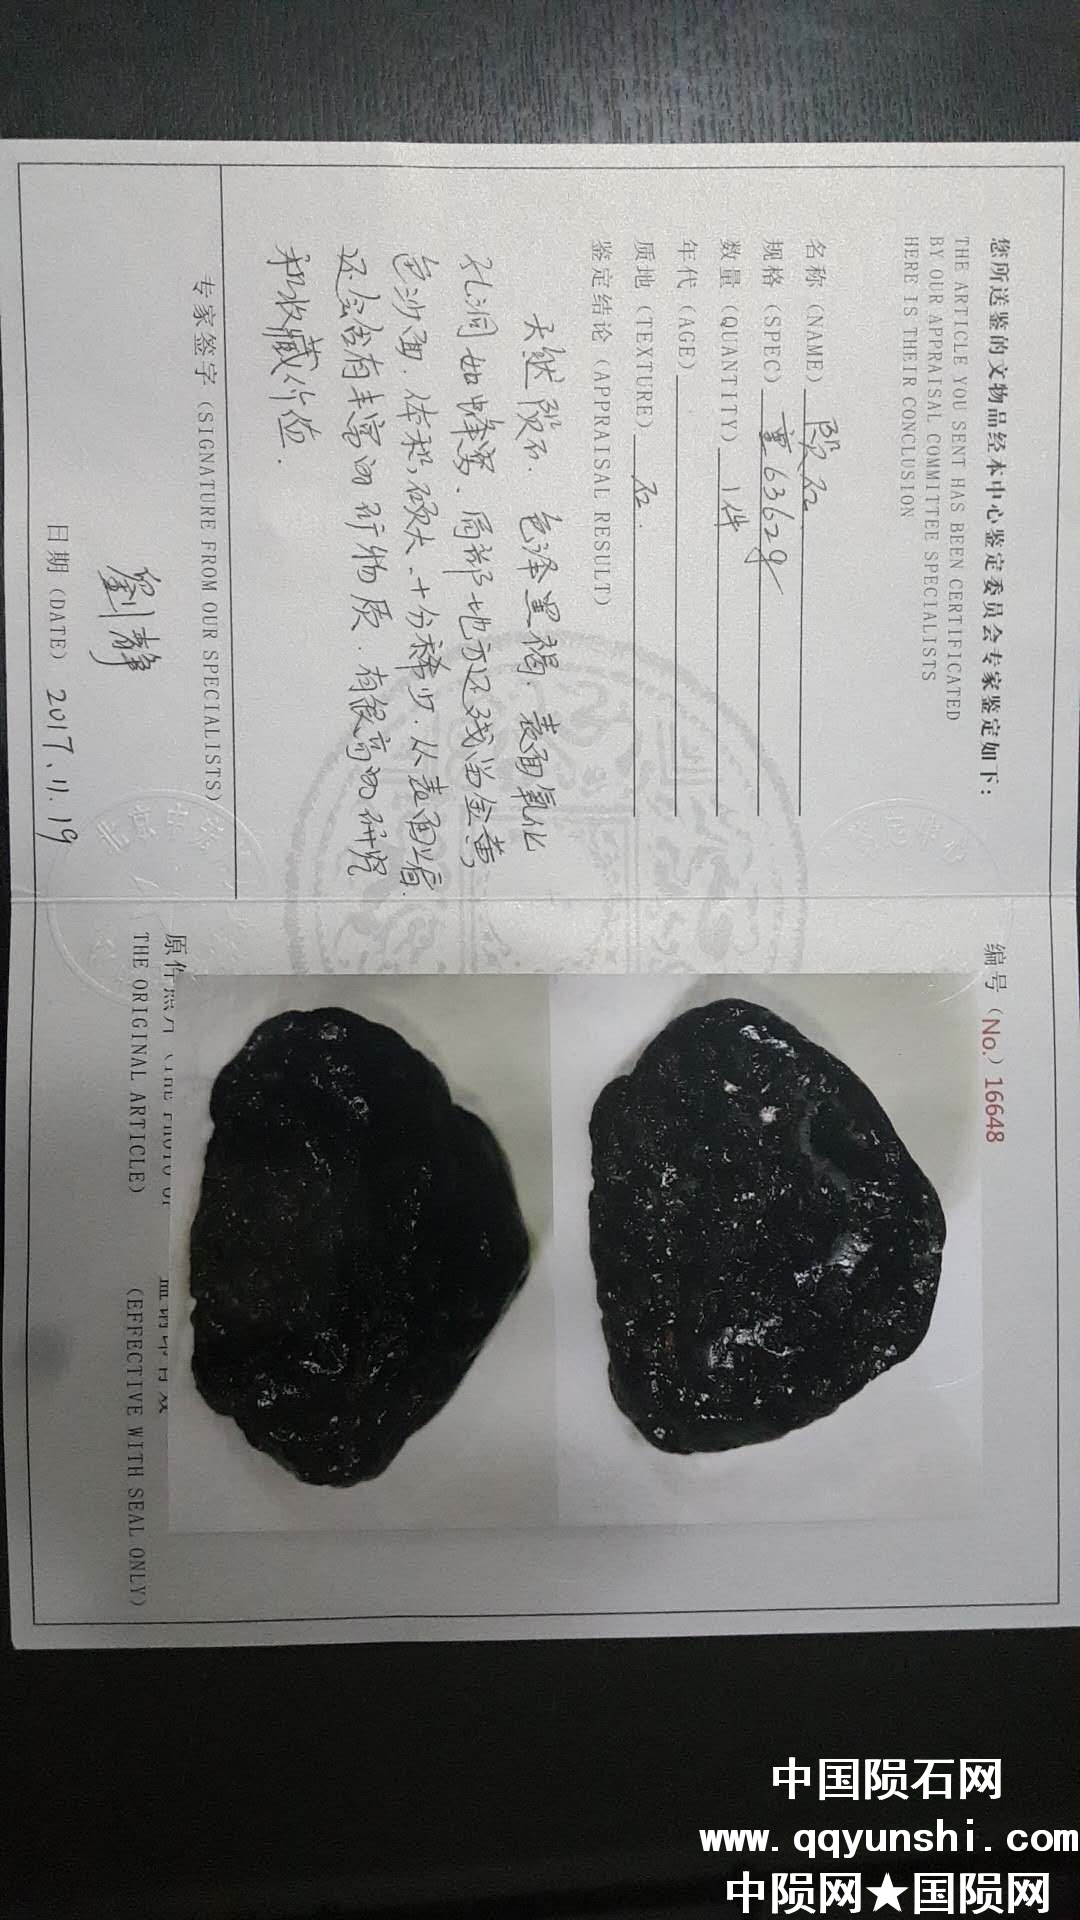 您所送鉴的文物品经本中心鉴定委员会专家鉴定如下：
THE ARTICLE YOU SENT HAS BEEN CERTIFICATED
BY OUR APPRAISAL COMMITTEE SPECIALISTS
HERE IS THEIR CONCLUSION
名称（NAME） 陨石
规格（SPEC） 重63629
数量（QUANTITY） 1件
年代（AGE）
质地（TEXTURE） 石.
鉴定结论（APPRAISAL RESULT）
天然陨石. 色泽黑褐. 表面氧化
孔洞如蜂窝. 局部地方还残留金黄
色沙面. 体积硕大、十分稀少. 从表面上看.
还会含有丰富的矿物质. 有很高的研究
和收藏价值.
专家签字（SIGNATURE FROM OUR SPECIALISTS）
劉静
日期（DATE） 2017、11.19
编号（No.）16648
原件照片（THE PHOTO OF
THE ORIGINAL ARTICLE）
（EFFECTIVE WITH SEAL ONLY）
中国陨石网
www.qqyunshi.com
中陨网★国陨网